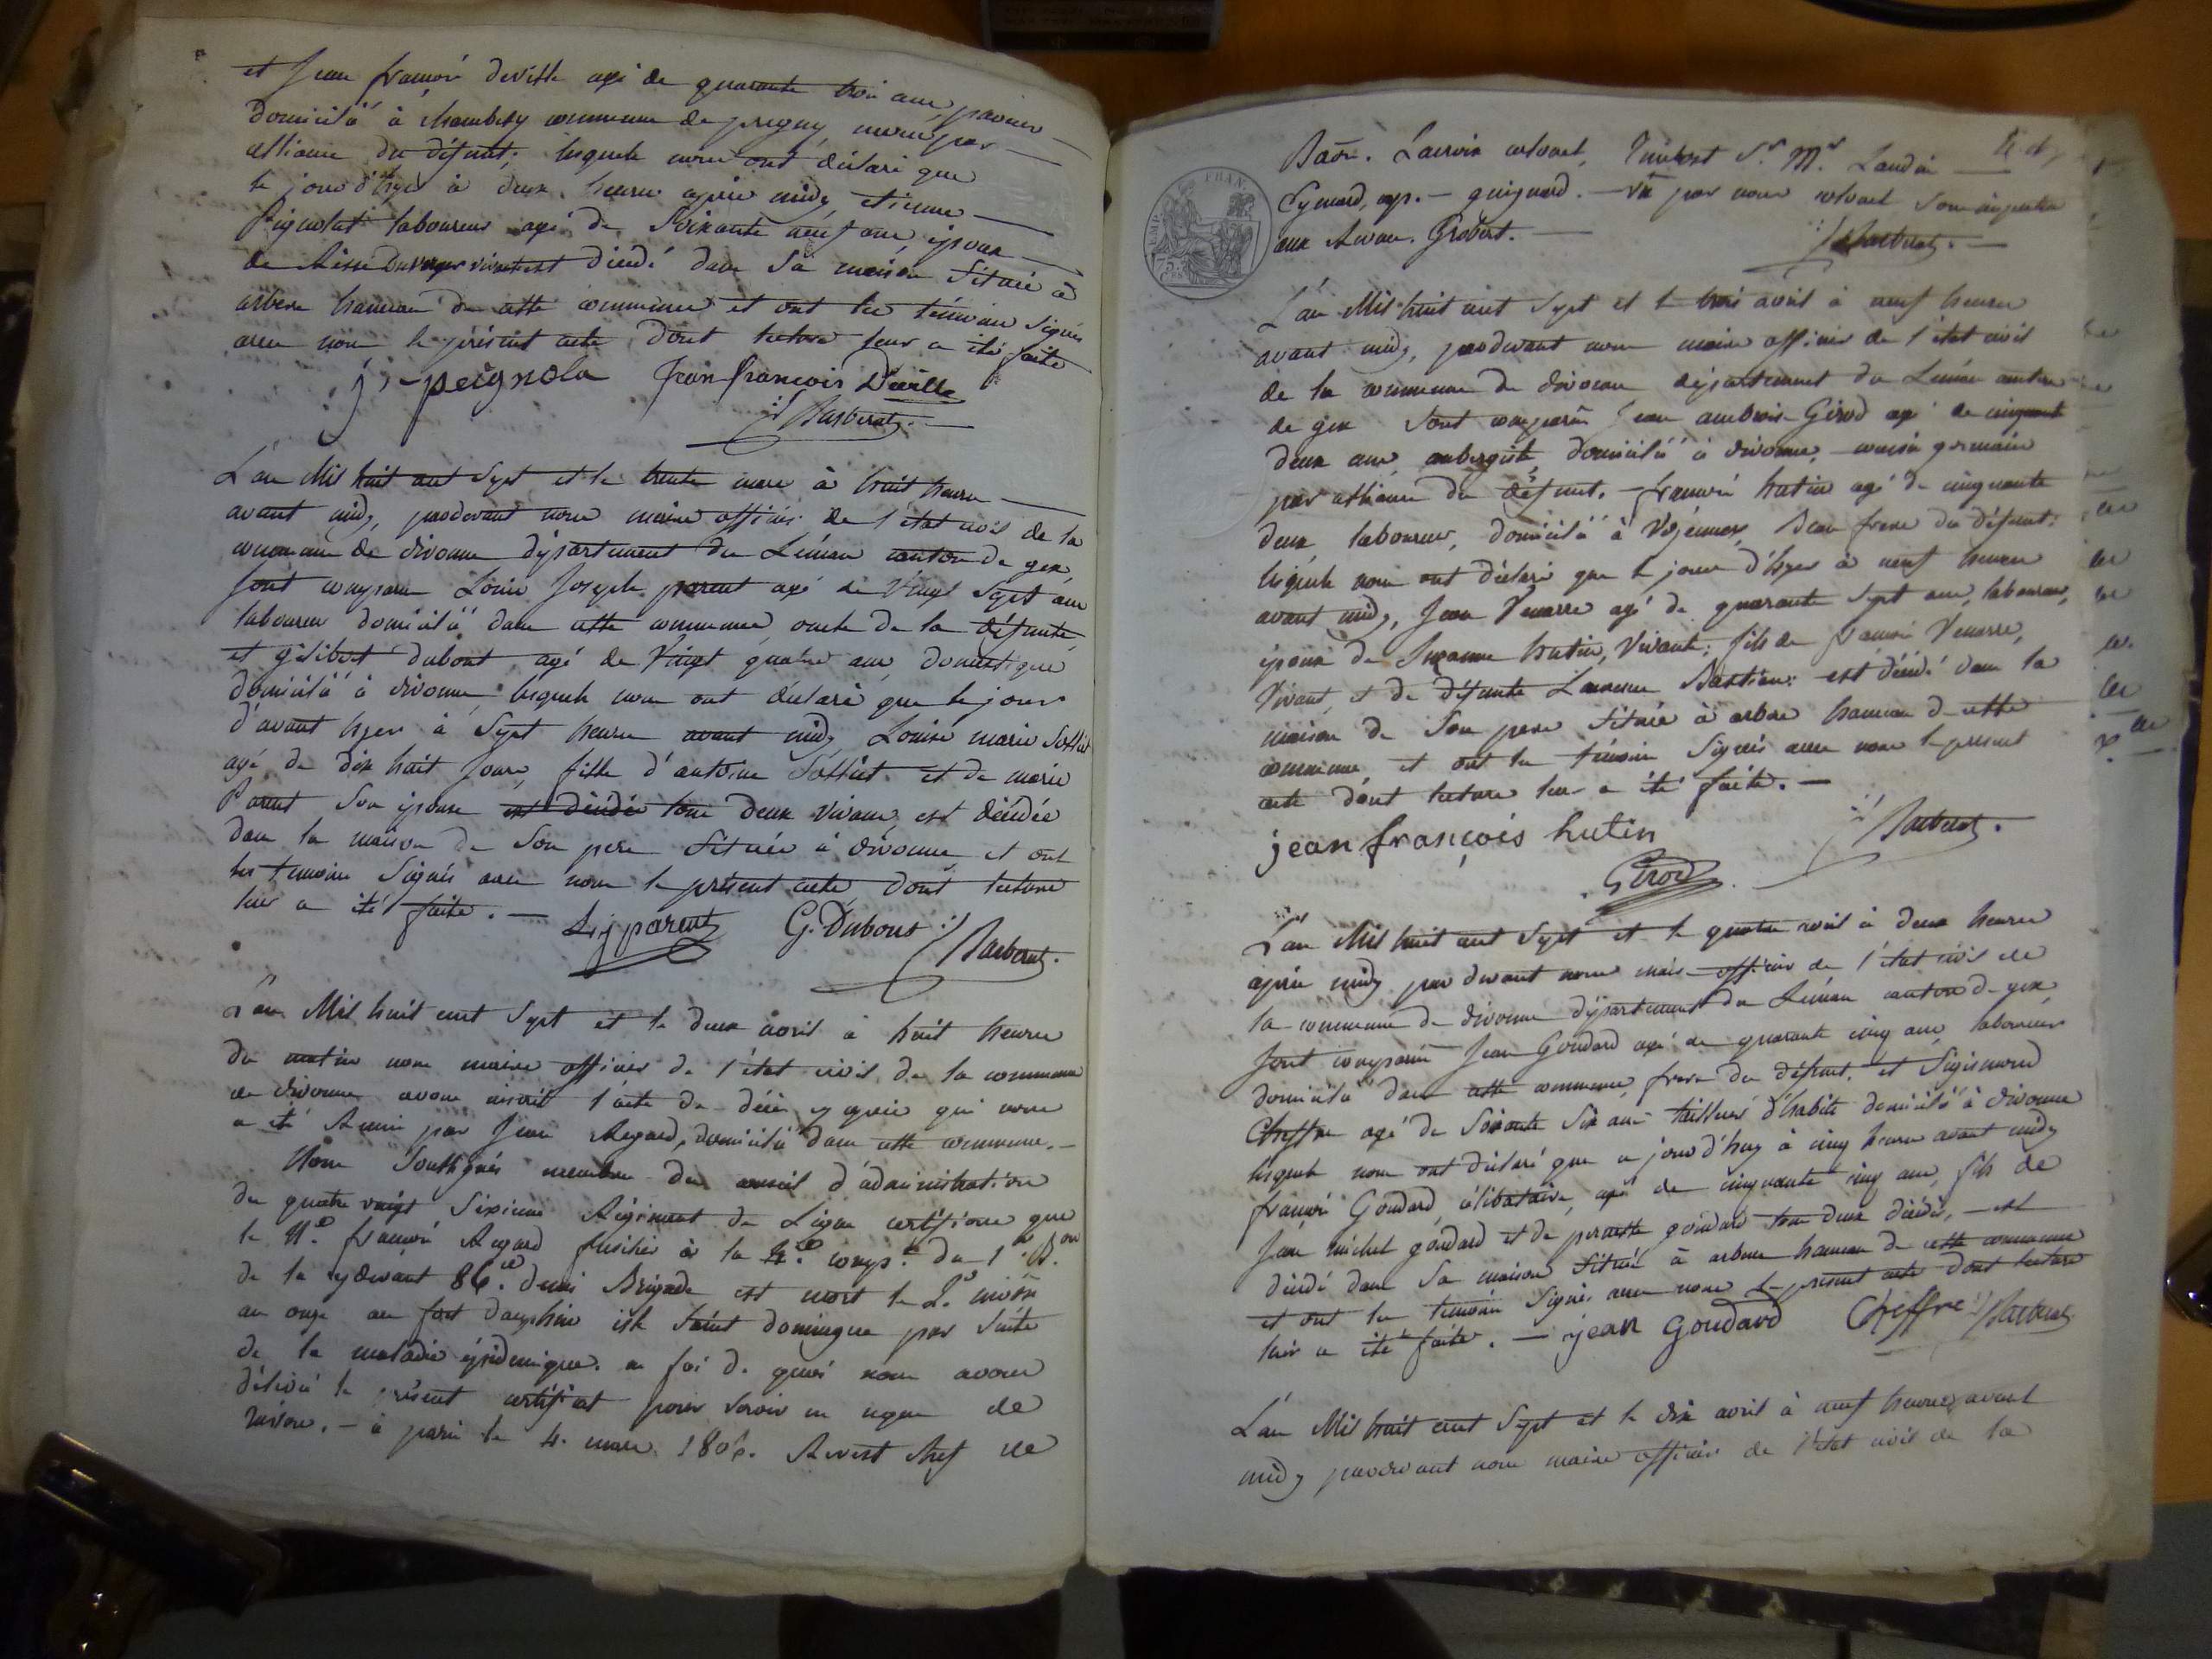 et Jean françois deville agé de quarante trois ans,
domicilié à Chambésy commune de pregny, neveu par
alliance du défunt; lesquels nous ont déclaré que
le jour d'hyer à deux heures après midy etienne
laboureur agé de soixante neuf ans, époux
de vivante est décédé dans sa maison située à
arbere hameau de cette commune et ont les témoins signés
avec nous le présent acte dont lecture leur a été faite
j. peignola Jean françois Deville
Barberat.
L'an Mil huit cent Sept et le trente mars à huit heures
avant midy, pardevant nous maire officier de l'état civil de la
commune de divonne département du Léman canton de gex
sont comparus Louis Joseph parent agé de Vingt Sept ans
laboureur domicilié dans cette commune, oncle de la défunte,
et dubout agé de Vingt quatre ans, domestique
domicilié à divonne, lesquels nous ont déclaré que le jour
d'avant hyer à Sept heures avant midy Louise marie
agé de dix huit Jours, fille d'antoine et de marie
Parent son épouse est décédée tous deux vivans, est décédée
dans la maison de son pere située à divonne et ont
les temoins Signés avec nous le présent acte dont lecture
leur a été faite. —
L j parent G. Dubout Barberat.
L'an Mil huit cent Sept et le deux avril à huit heures
du matin nous maire officier de l'état civil de la commune
de divonne avons inscrit l'acte de décès cy après qui nous
a été remis par Jean Regard, domicilié dans cette commune. —
Nous soussignés membres du conseil d'administration
du quatre vingt Sixieme Régiment de Ligne certifions que
le N.é françois Regard fusilier à la 4.e comp.e du 1.er B.on
de la cydevant 86.e demi Brigade est mort le 2.e
an onze au fort dauphin isle saint domingue par suite
de la maladie épidemique. en foi de quoi nous avons
délivré le présent certificat pour servir en que de
raison. — à paris le 4. mars 1806. chef de
Baon. Lacroix colonel, S.r M.r
Eymard, cap. — guignard. — Vu par nous
aux Revues. Grobert. —
Barberat. —
L'an Mil huit cent Sept et le trois avril à neuf heures
avant midy, pardevant nous maire officier de l'état civil
de la commune de divonne département du Léman canton
de gex sont comparus Jean ambroise Girod agé de cinquante
deux ans aubergiste, domicilié à divonne, cousin germain
par alliance du défunt. — françois hutin agé de cinquante
deux, laboureur, domicilié à Vésenex, beau frere du défunt:
lesquels nous ont déclaré que le jour d'hyer à neuf heures
avant midy, Jean Venarre agé de quarante Sept ans, laboureur,
époux de Suzanne hutin, Vivante; fils de françois Venarre,
Vivant, et de défunte Laurence Bastian: est décédé dans la
maison de son pere située à arbere hameau de cette
commune, et ont les témoins Signés avec nous le présent
acte dont lecture leur a été faite. —
jean françois hutin Barberat.
Girod
L'an Mil huit cent Sept et le quatre avril à deux heures
après midy par devant nous maire officier de l'état civil de
la commune de divonne département du Léman canton de gex,
sont comparus Jean Goudard agé de quarante cinq ans, laboureur
domicilié dans cette commune, frere du défunt. et Sigismond
Cheffre agé de Soixante Six ans tailleur d'habits domicilié à divonne
lesquels nous ont déclaré que ce jourd'huy à cinq heures avant midy
françois Goudard, célibataire, agé de cinquante cinq ans, fils de
Jean michel goudard et de pernette goudard tous deux décédés, — est
décédé dans sa maison située à arbere hameau de cette commune
et ont les temoins signés avec nous le présent acte dont lecture
leur a été faite. — jean Goudard Cheffre Barberat
L'an Mil huit cent Sept et le dix avril à neuf heures avant
midy pardevant nous maire officier de l'état civil de la